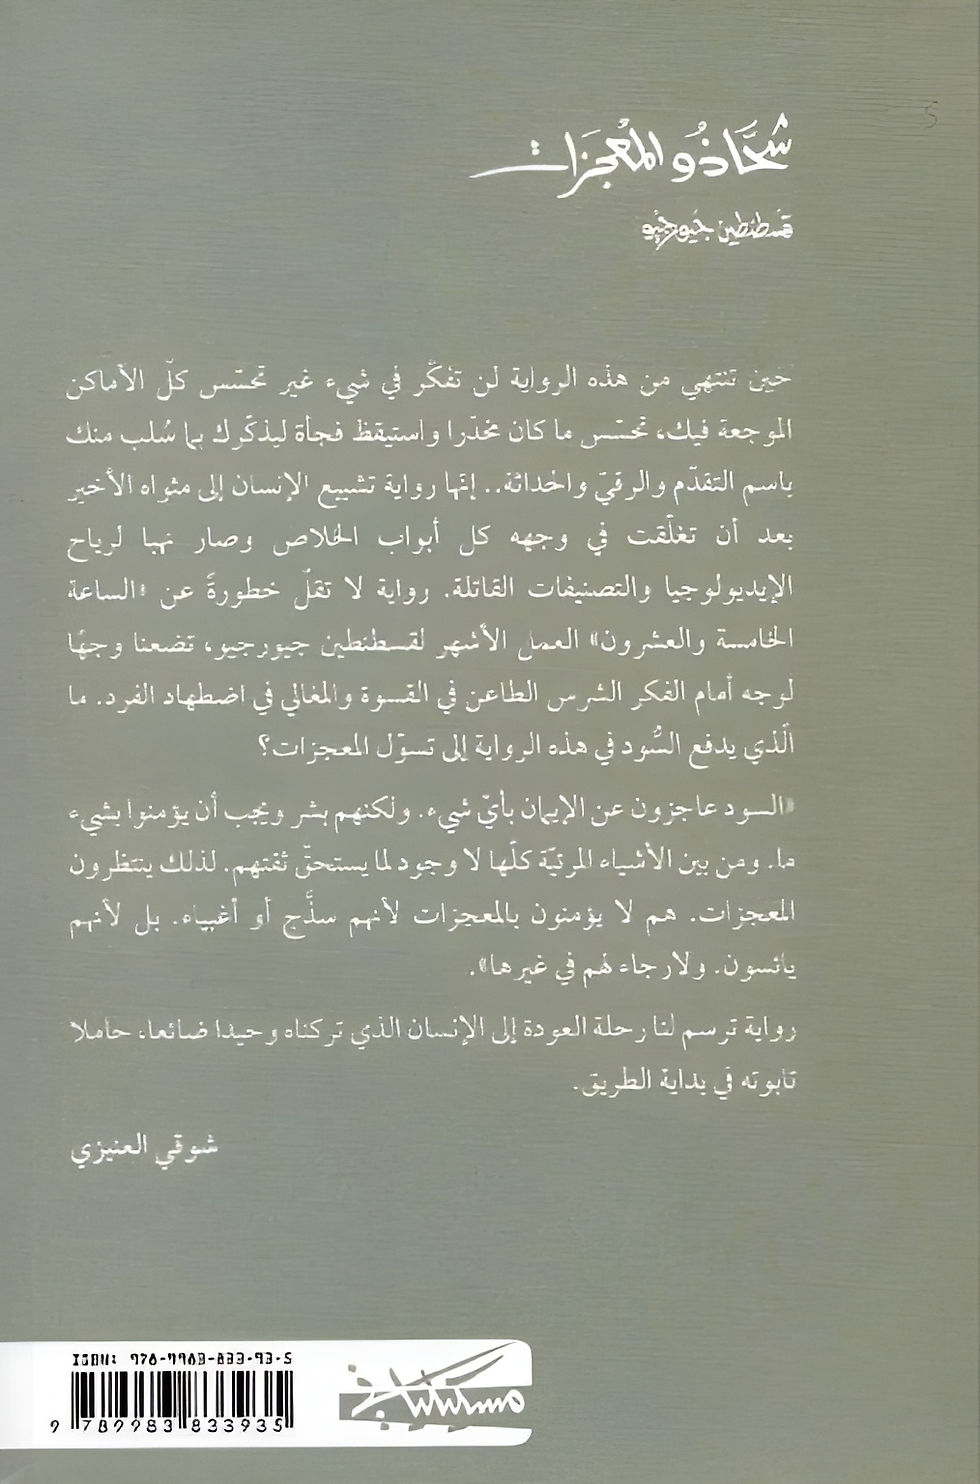 شحَّاذُو المُعْجِزَات
قسطنطين جيورجيو
حين تنتهي من هذه الرواية لن تفكّر في شيء غير تحسّس كلّ الأماكن
الموجعة فيك، تحسّس ما كان مخدّرا واستيقظ فجأة ليذكّرك بما سُلب منك
باسم التقدّم والرقيّ والحداثة.. إنّها رواية تشييع الإنسان إلى مثواه الأخير
بعد أن تغلّقت في وجهه كل أبواب الخلاص وصار نهبا لرياح
الإيديولوجيا والتصنيفات القاتلة. رواية لا تقلّ خطورةً عن «الساعة
الخامسة والعشرون» العمل الأشهر لقسطنطين جيورجيو، تضعنا وجهًا
لوجه أمام الفكر الشرس الطاعن في القسوة والمغالي في اضطهاد الفرد. ما
الّذي يدفع السُّود في هذه الرواية إلى تسوّل المعجزات؟
«السود عاجزون عن الإيمان بأيّ شيء. ولكنهم بشر ويجب أن يؤمنوا بشيء
ما. ومن بين الأشياء المرئيّة كلّها لا وجود لما يستحقّ ثقتهم. لذلك ينتظرون
المعجزات. هم لا يؤمنون بالمعجزات لأنهم سذَّج أو أغبياء. بل لأنهم
يائسون. ولا رجاء لهم في غيرها».
رواية ترسم لنا رحلة العودة إلى الإنسان الذي تركناه وحيدا ضائعا، حاملا
تابوته في بداية الطريق.
شوقي العنيزي
ISBN: 978-9983-833-93-5
9 789983 833935
مسكيلياني